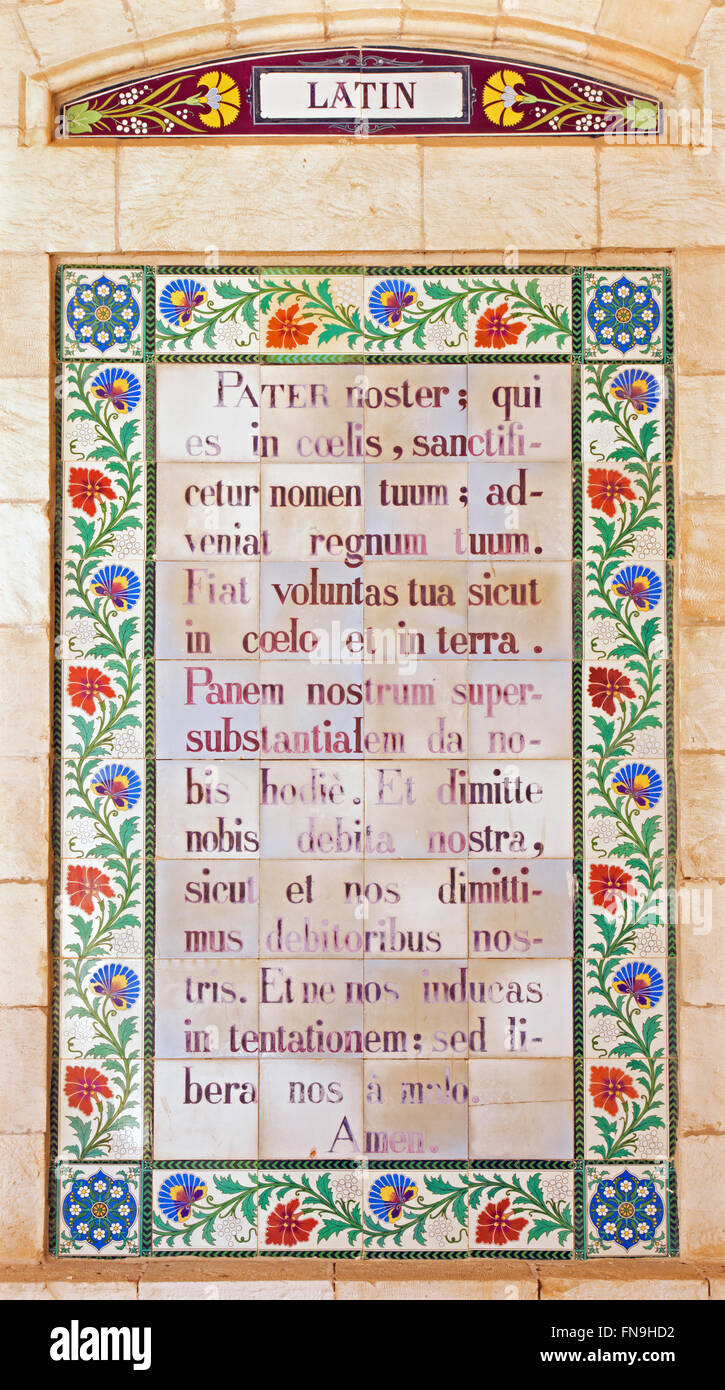 LATIN
PATER noster; qui
es in cœlis, sanctifi-
cetur nomen tuum; ad-
veniat regnum tuum.
Fiat voluntas tua sicut
in cœlo et in terra.
Panem nostrum super-
substantialem da no-
bis hodiè. Et dimitte
nobis debita nostra,
sicut et nos dimitti-
mus debitoribus nos-
tris. Et ne nos inducas
in tentationem; sed li-
bera nos à malo.
Amen.
alamy
Image ID: FN9HD2
www.alamy.com